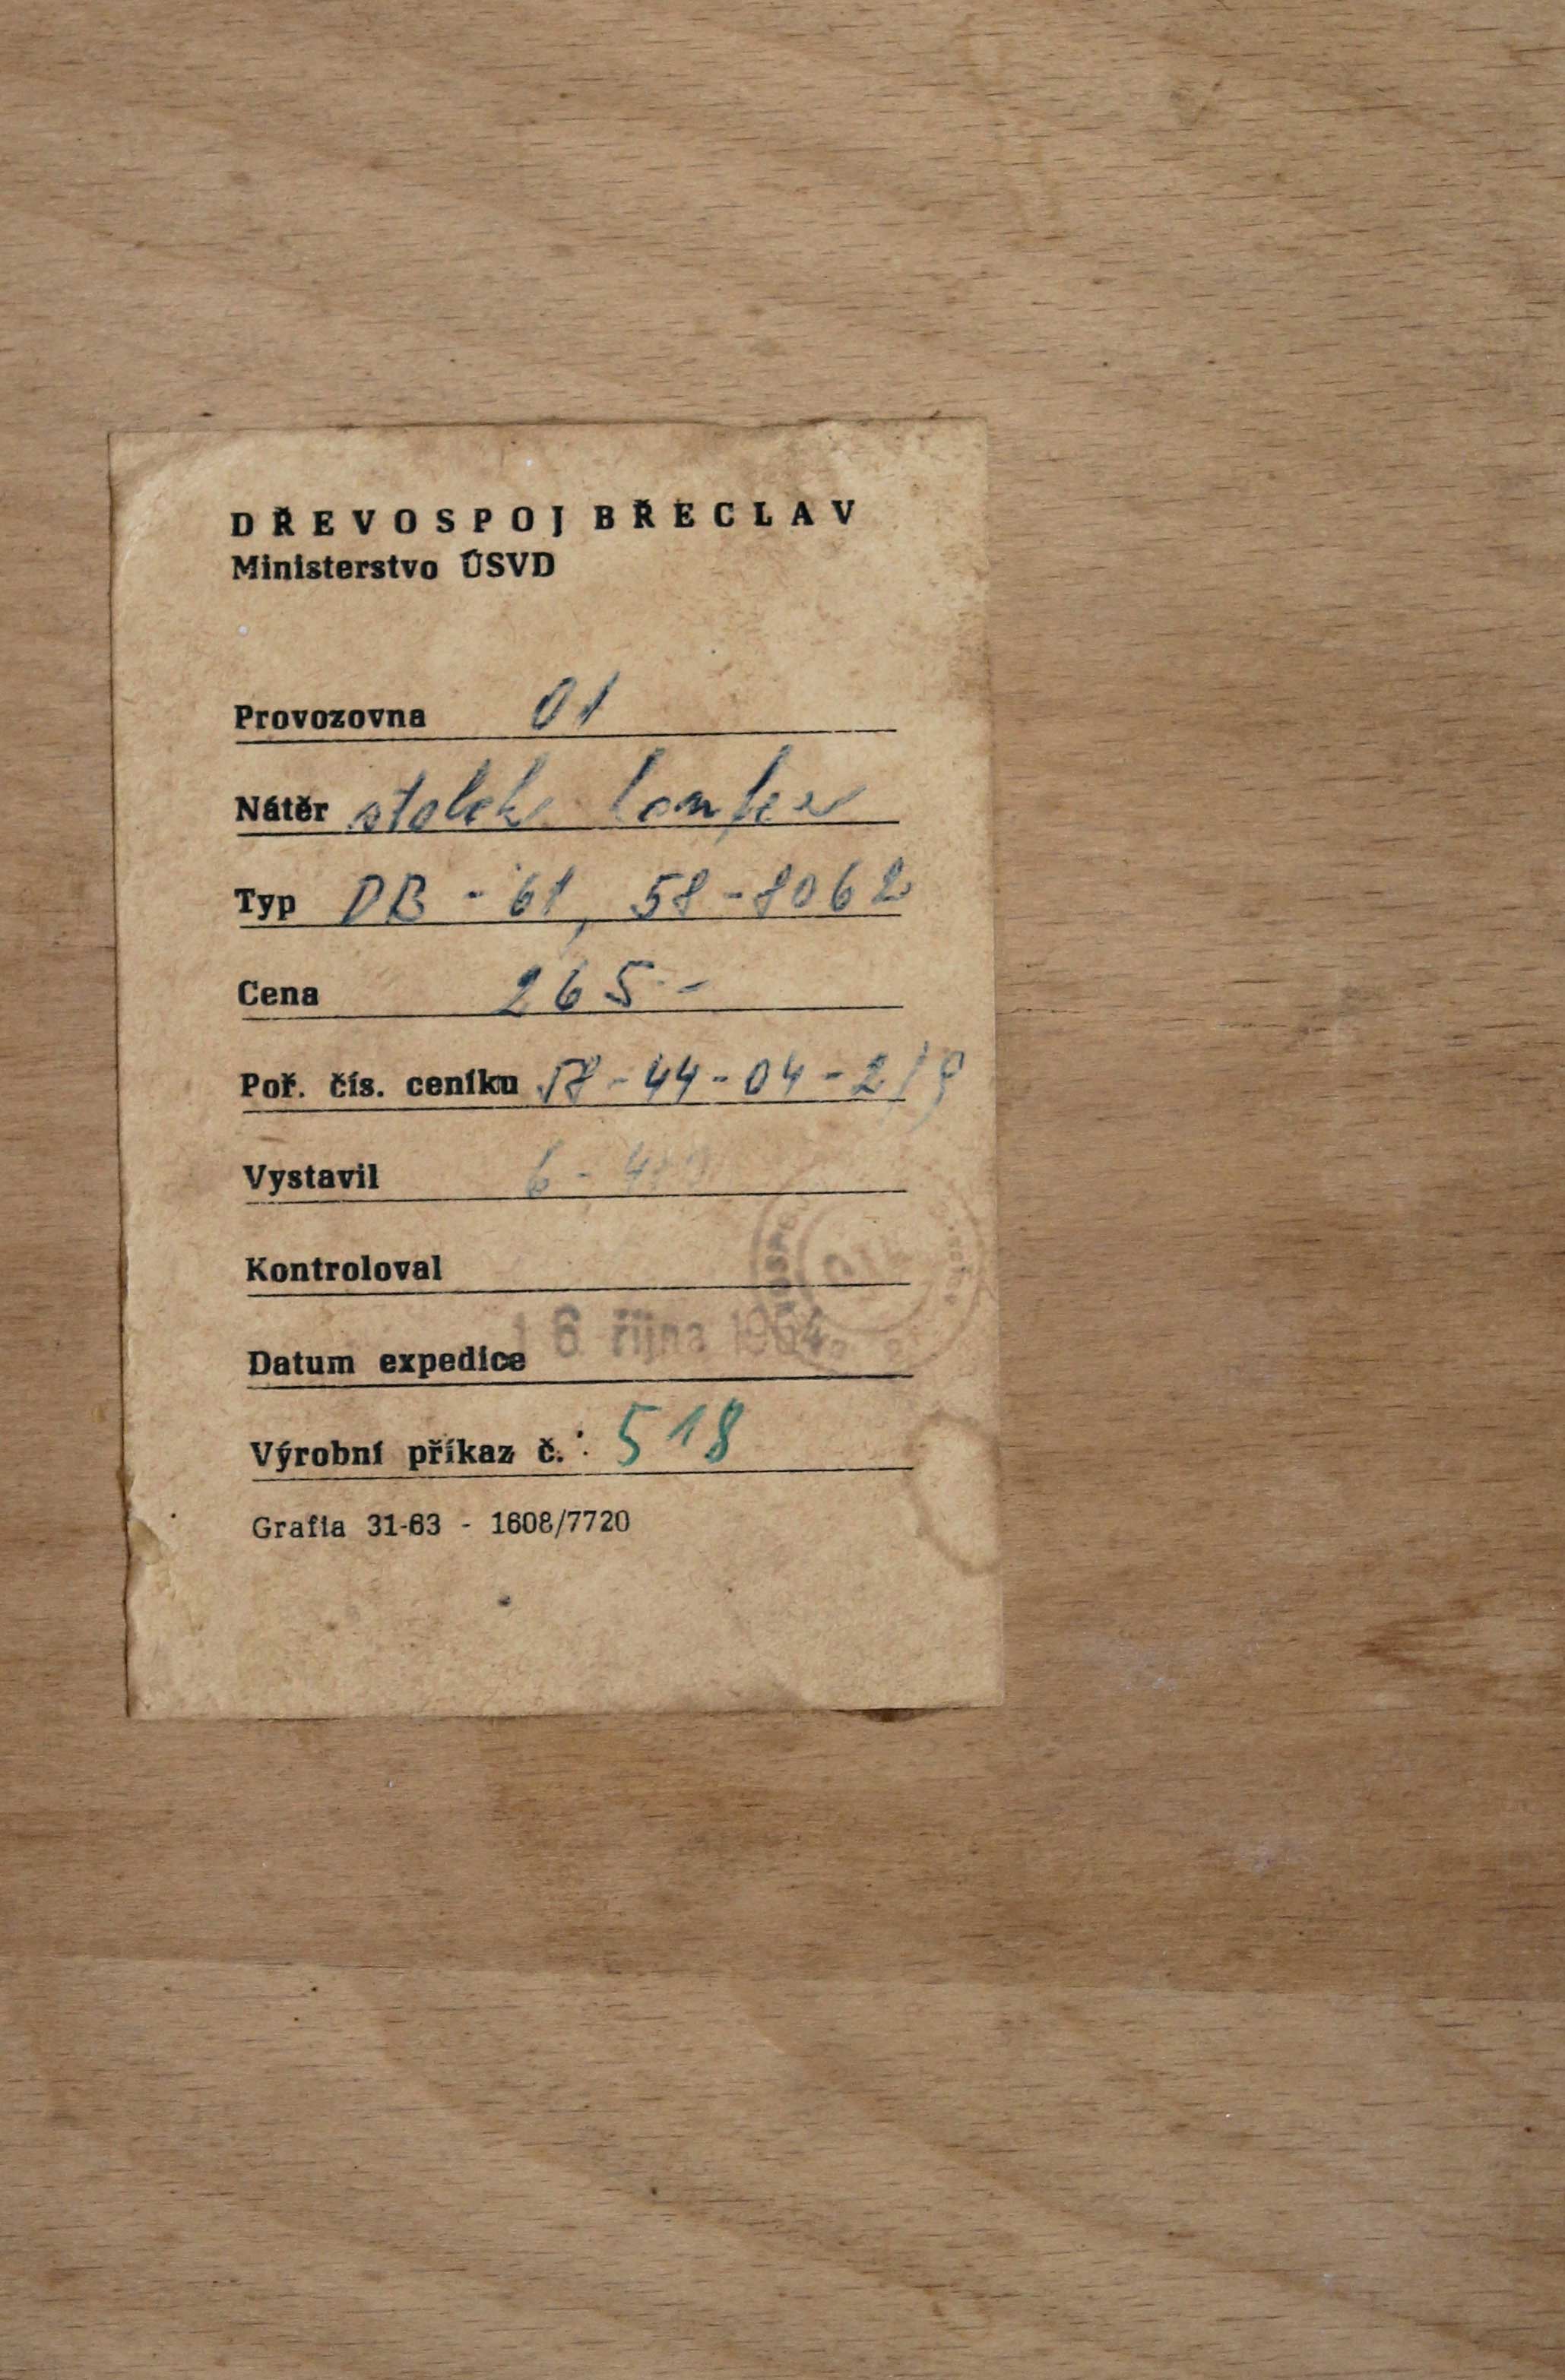 DŘEVOSPOJ BŘECLAV
Ministerstvo ÚSVD
Provozovna 01
Nátěr stolek
Typ DB - 61, 58-8062
Cena 265-
Poř. čís. ceníku 58-44-04-219
Vystavil
Kontroloval
Datum expedice 16 října 1964
Výrobní příkaz č.: 518
Grafia 31-63 - 1608/7720